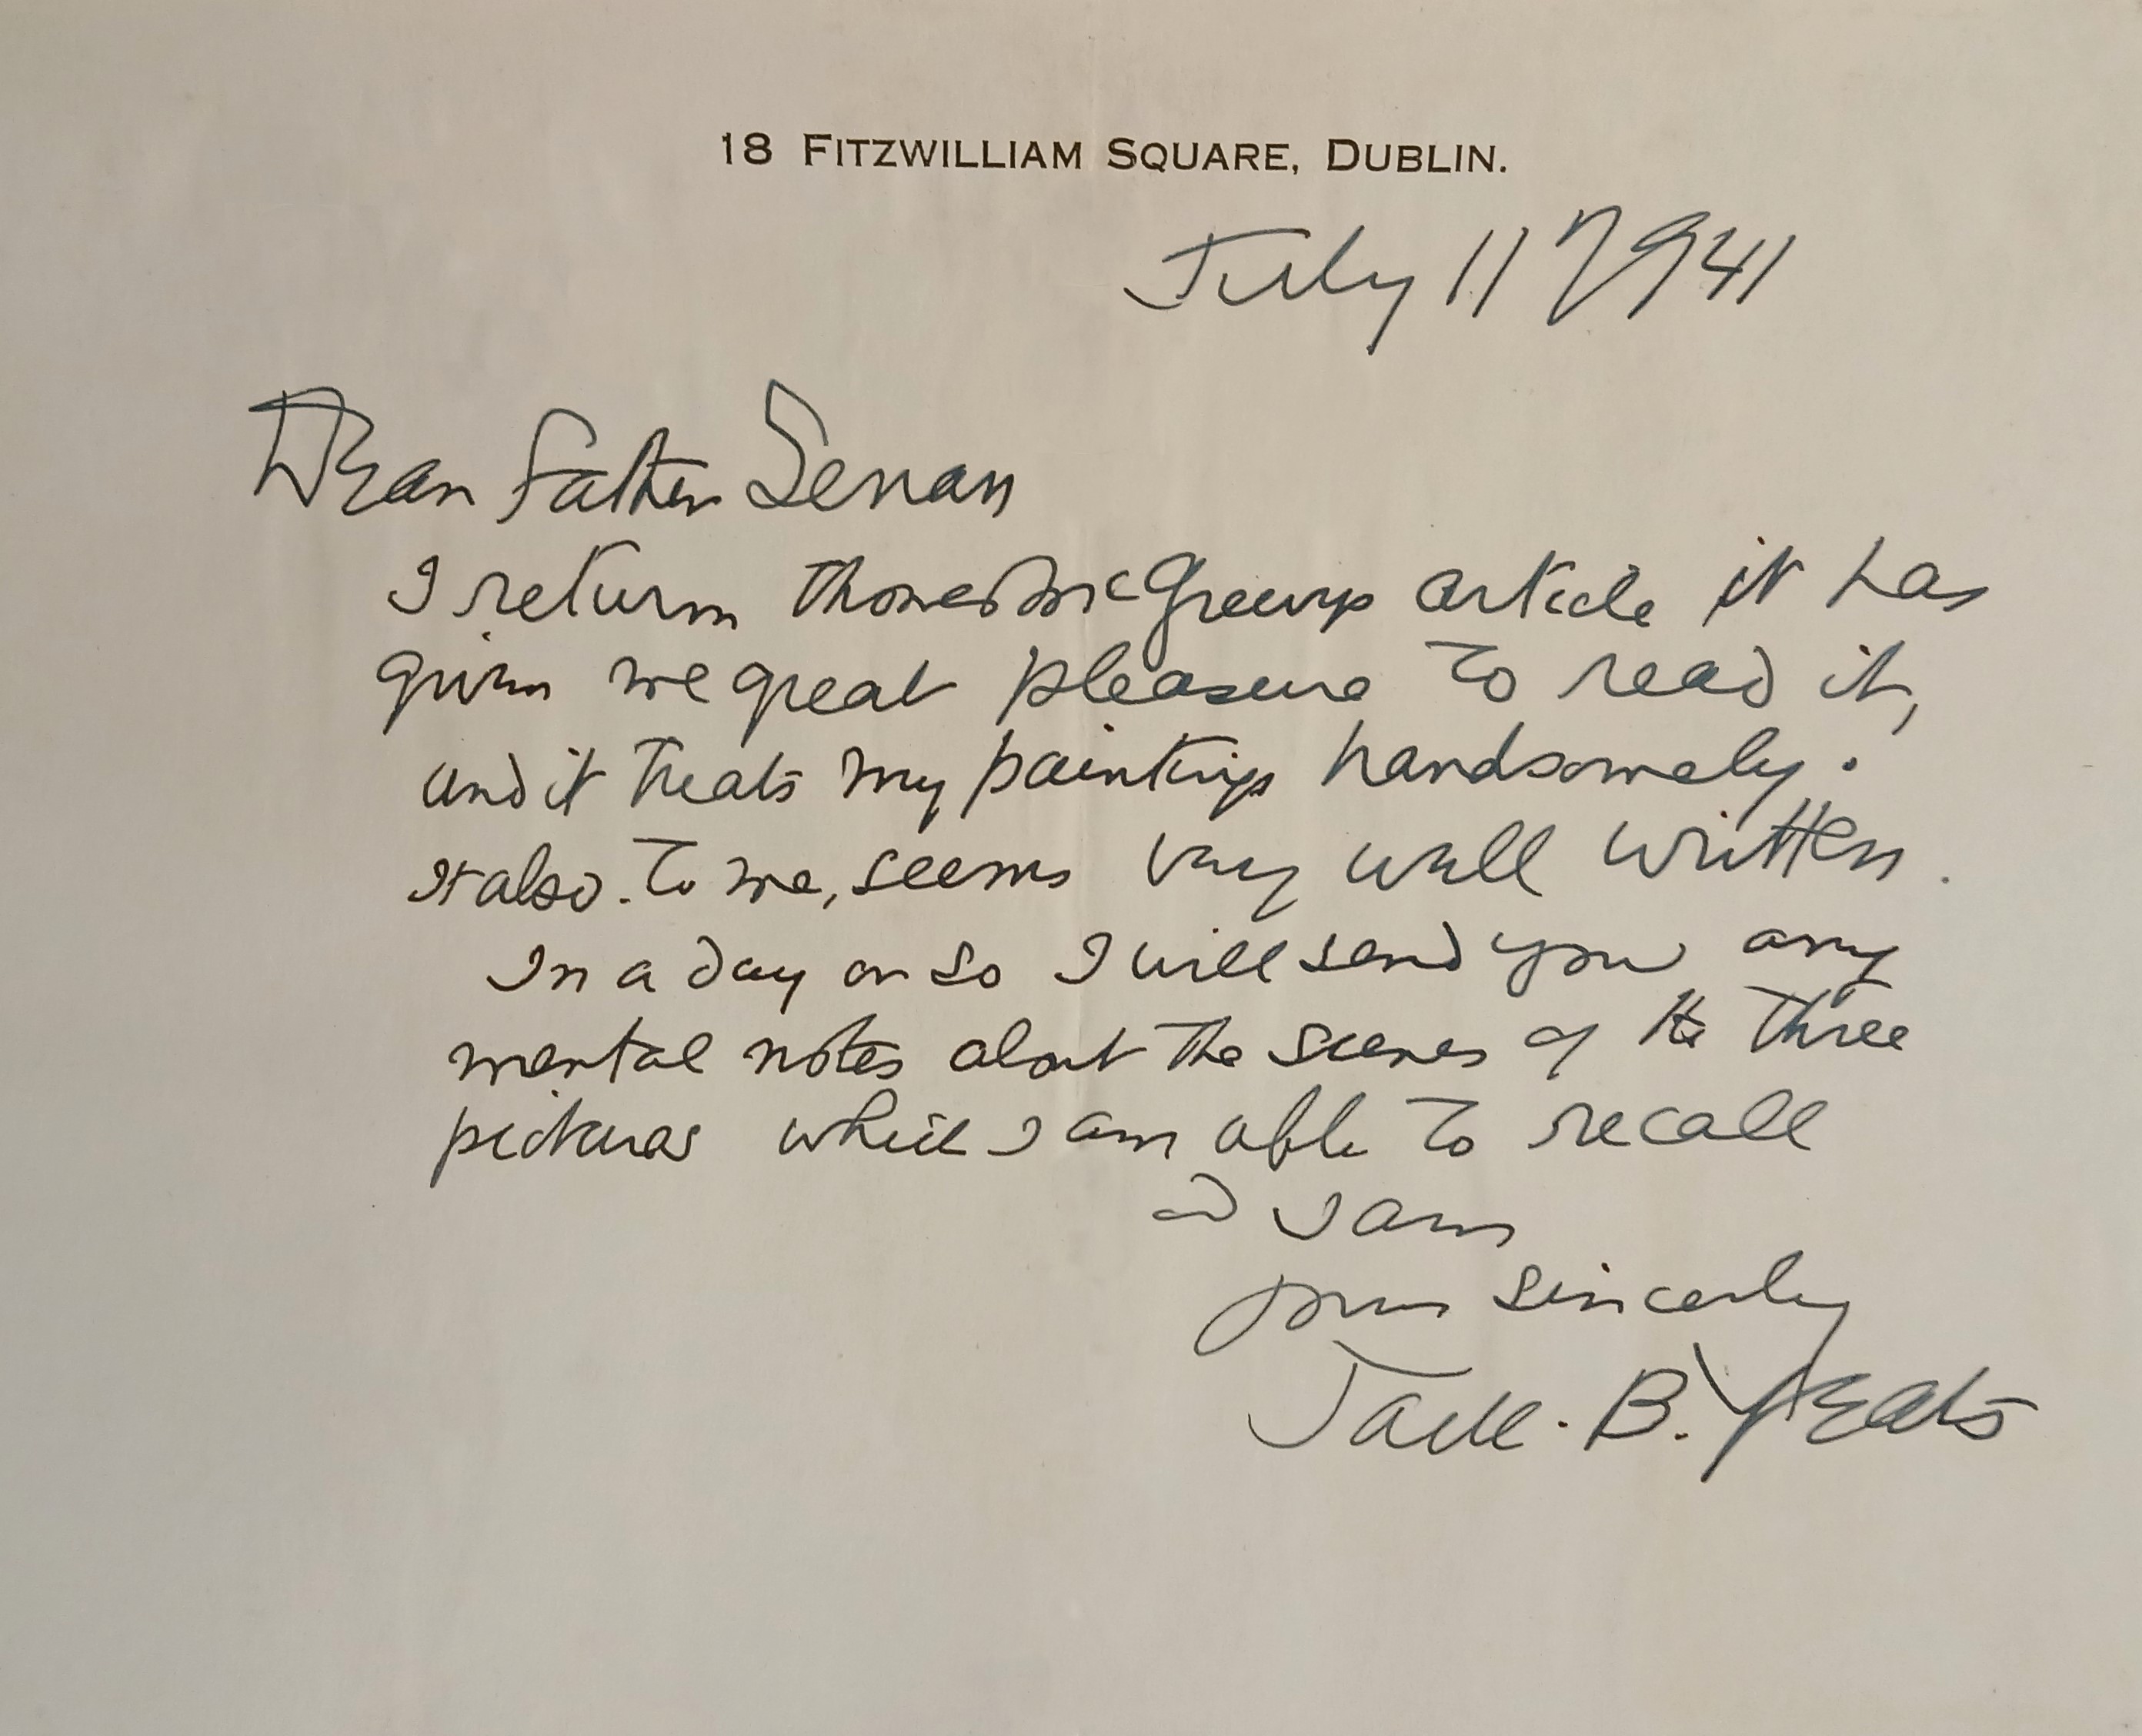 18 FITZWILLIAM SQUARE, DUBLIN.
July 11 1941
Dear Father Senan
I return Thomas McGreevys article it has
given me great pleasure to read it,
and it treats my paintings handsomely.
It also. to me, seems very well written.
In a day or so I will send you any
mental notes about the scenes of the three
pictures which I am able to recall
I am
yours sincerely
Jack. B. Yeats